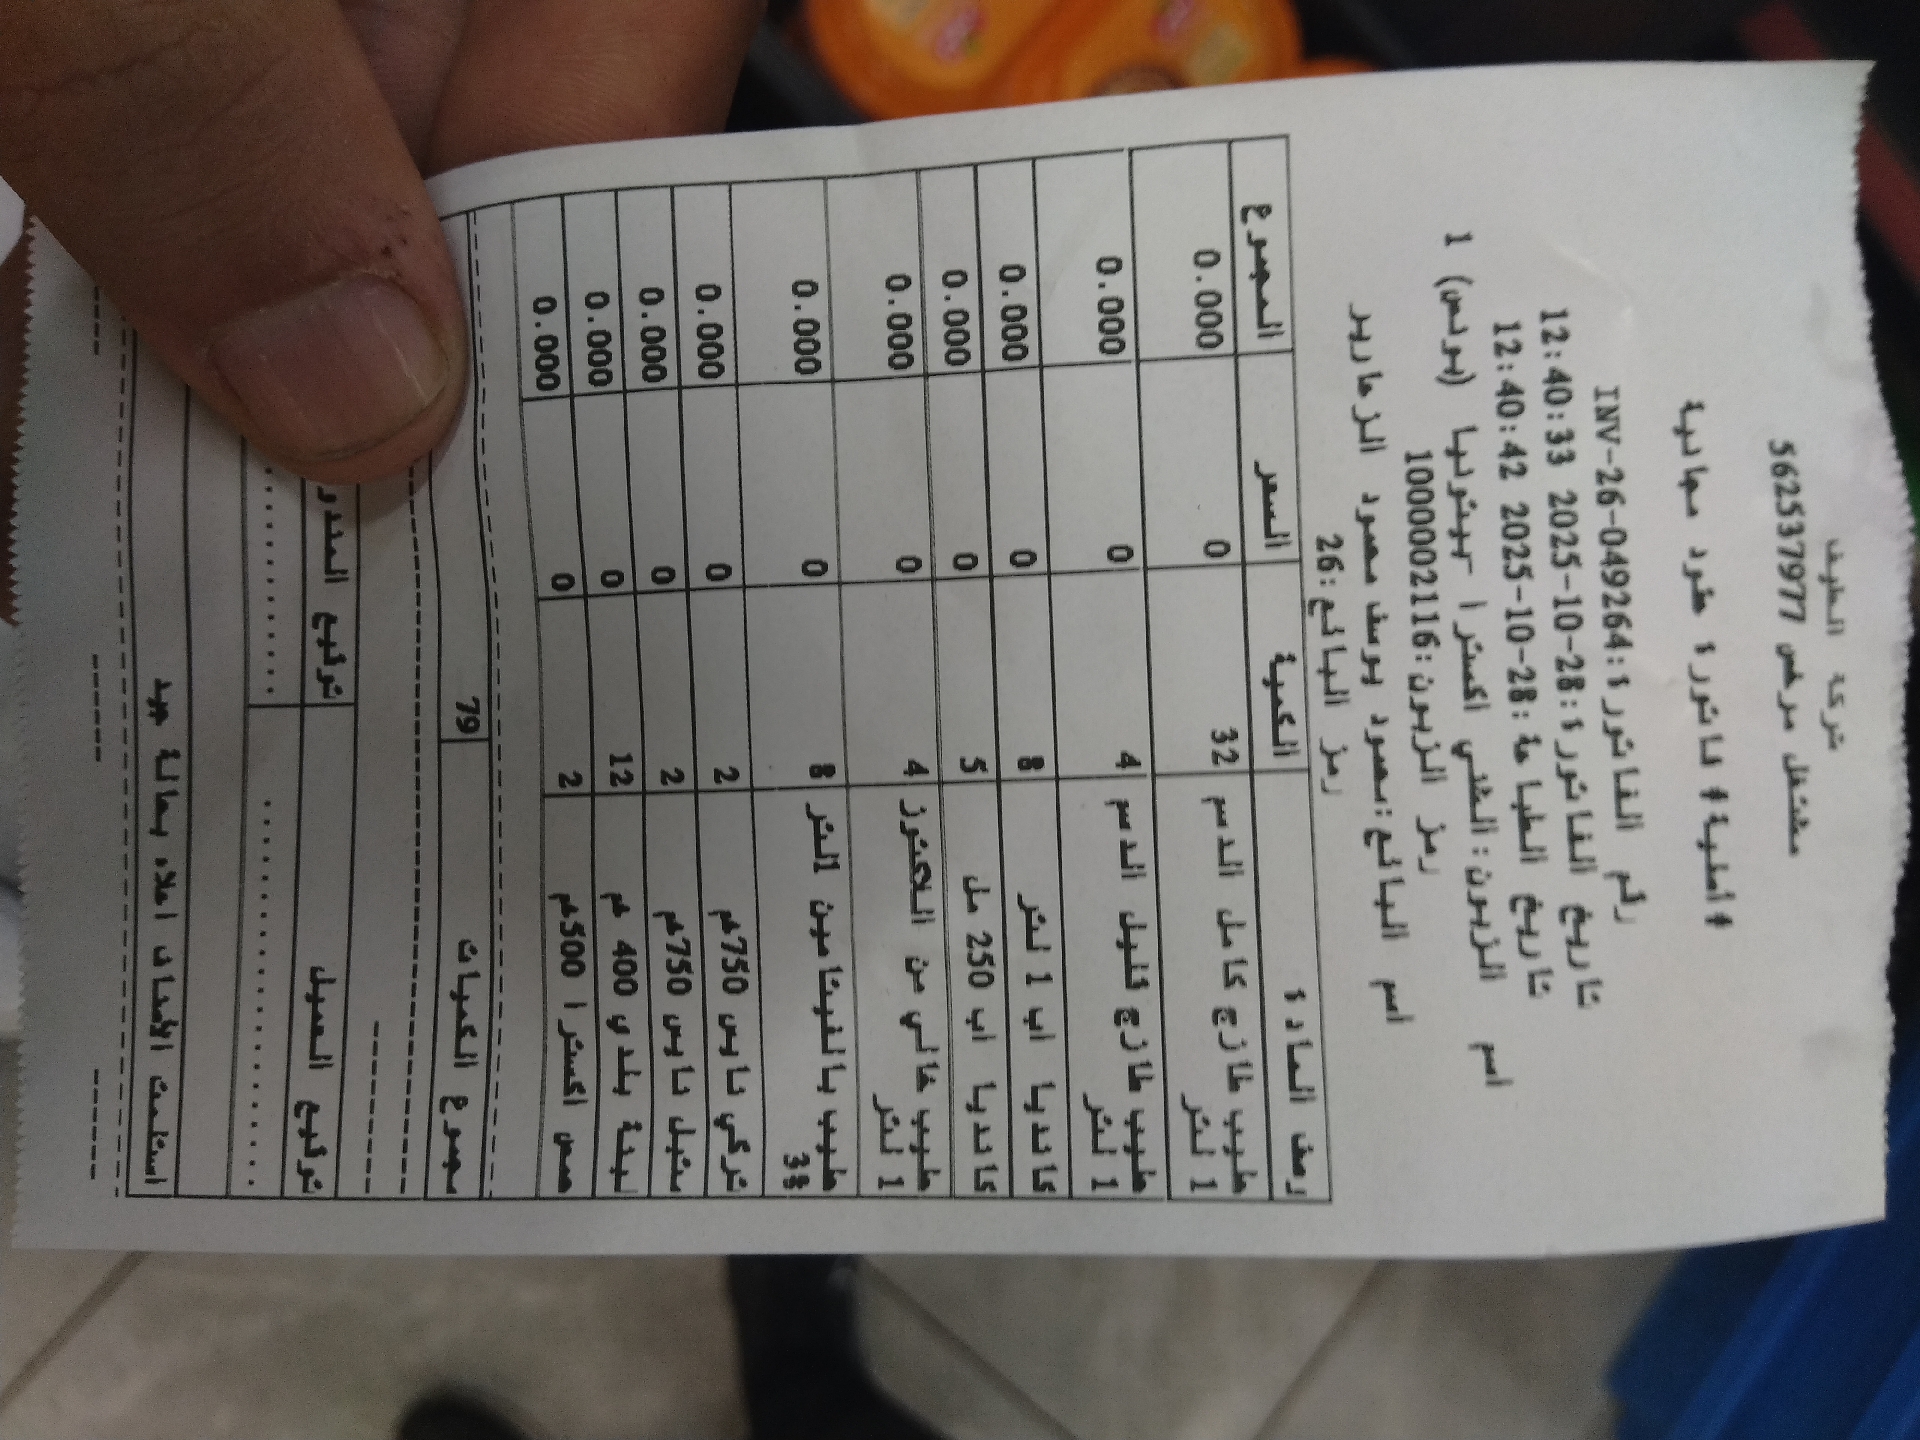 شركة الطيف
مشتغل مرخص 562537977
#أصلية# فاتورة عقود مجانية
رقم الفاتورة:INV-26-049264
تاريخ الفاتورة:28-10-2025 12:40:33
تاريخ الطباعة:28-10-2025 12:40:42
اسم الزبون:الشني اكسترا -بيتونيا (بونص) 1
رمز الزبون:1000002116
اسم البائع:محمود يوسف محمود الزعارير
رمز البائع:26
وصف المادة الكمية السعر المجموع
حليب طازج كامل الدسم 1 لتر 32 0 0.000
حليب طازج قليل الدسم 1 لتر 4 0 0.000
كانديا اب 1 لتر 8 0 0.000
كانديا اب 250 مل 5 0 0.000
حليب خالي من اللاكتوز 1 لتر 4 0 0.000
حليب بالفيتامين 1لتر 3% 8 0 0.000
تركي نايس 750غم 2 0 0.000
متبل نايس 750غم 2 0 0.000
لبنة بلدي 400 غم 12 0 0.000
حمص اكسترا 500غم 2 0 0.000
مجموع الكميات 79
توقيع العميل توقيع
استلمت الأصناف اعلاه بحالة جيد